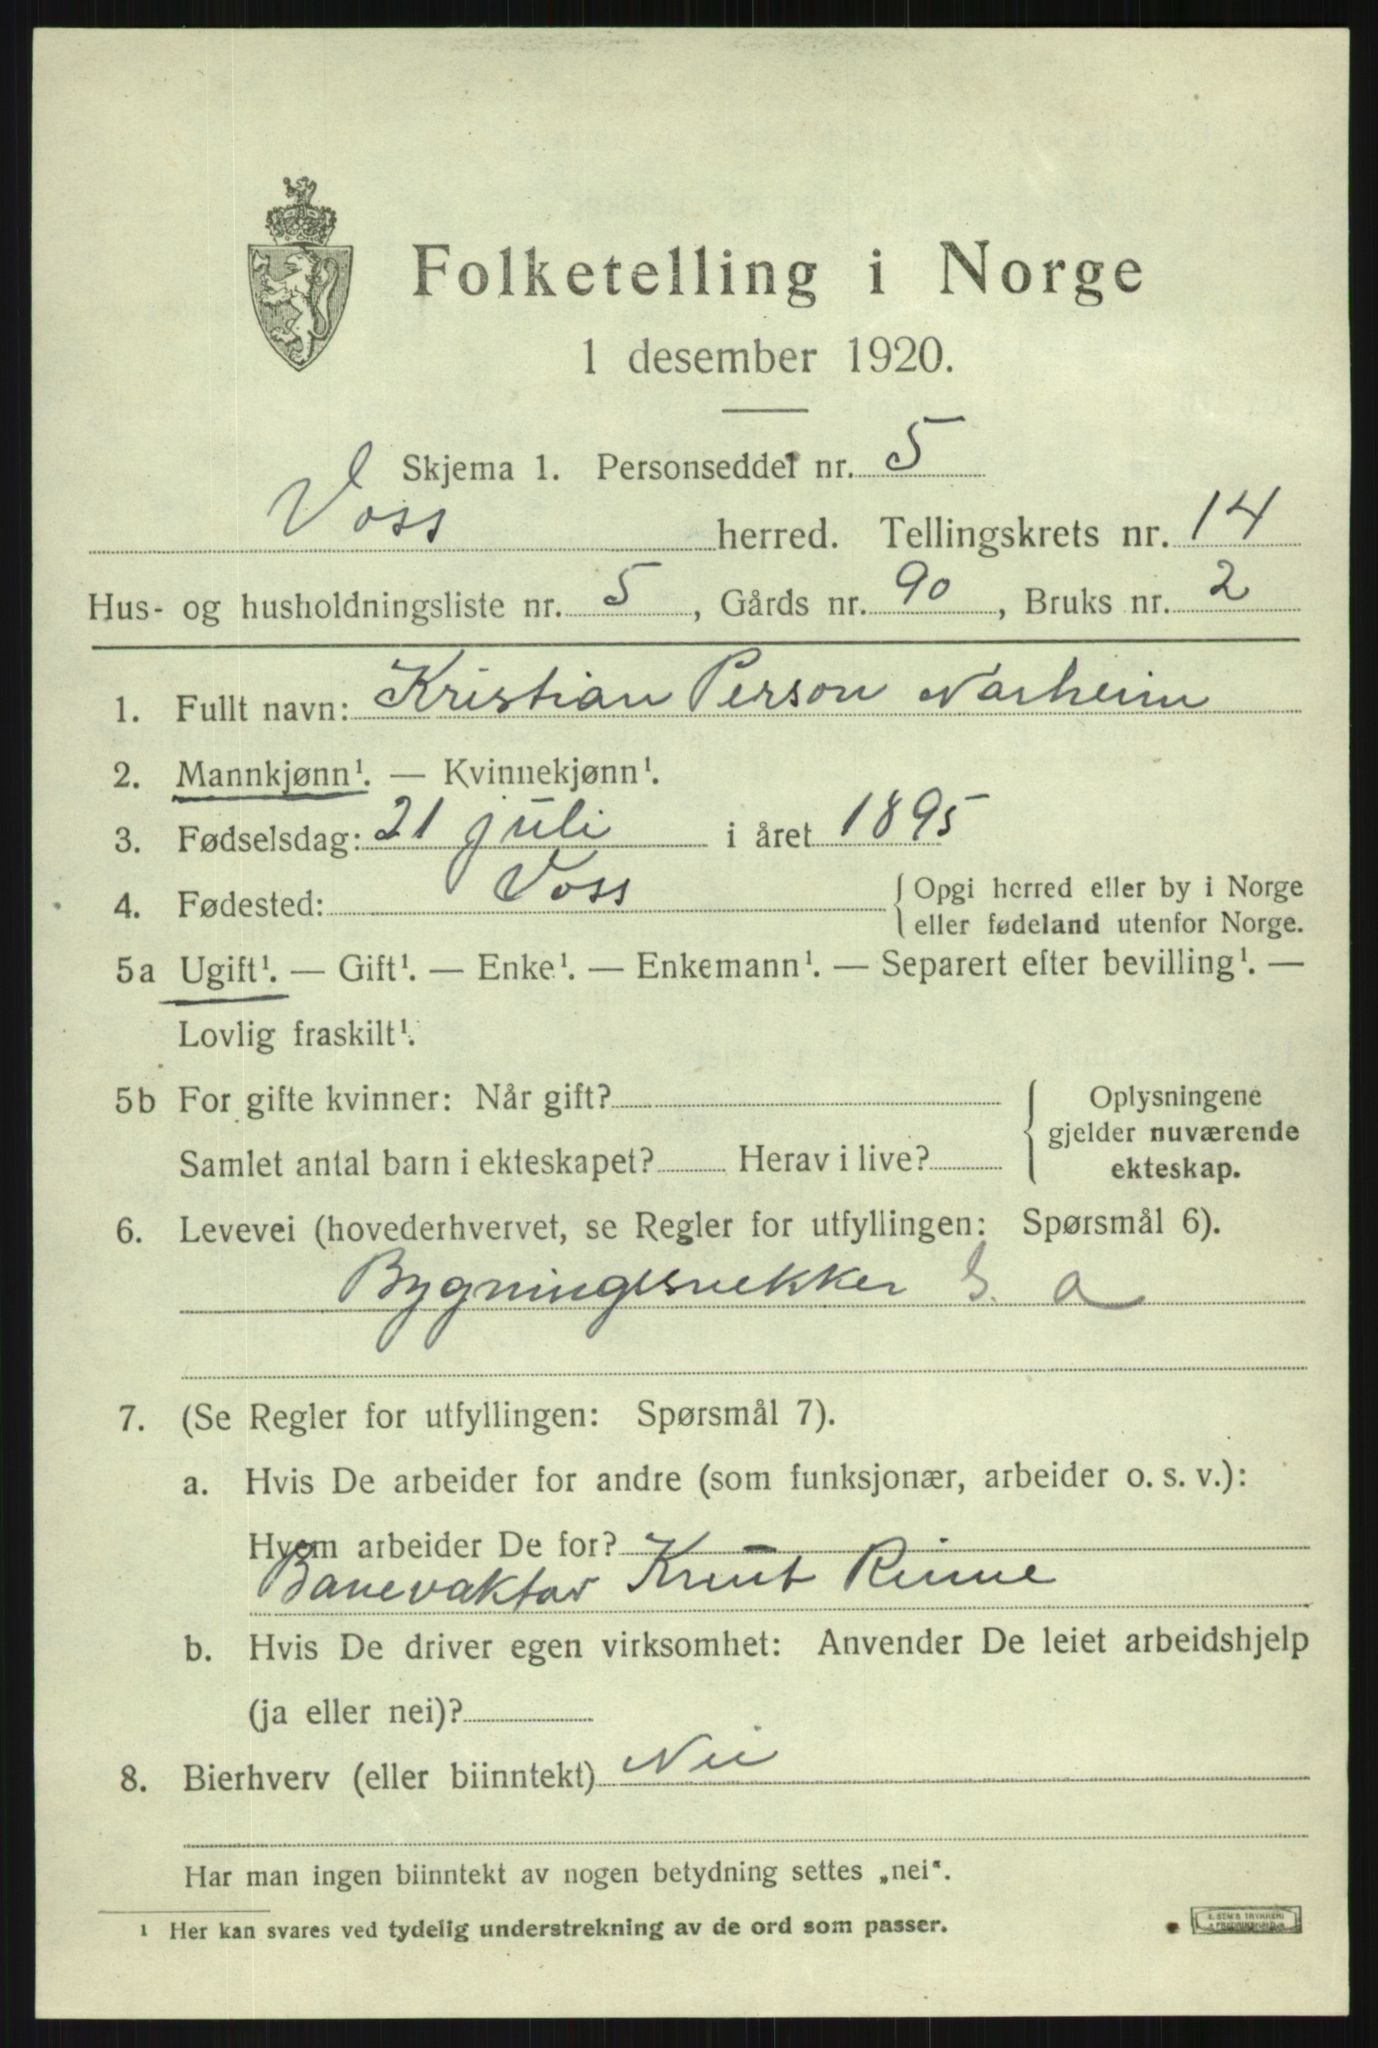 Folketelling i Norge
1 desember 1920.
Skjema 1. Personseddel nr. 5
Voss herred. Tellingskrets nr. 14
Hus- og husholdningsliste nr. 5, Gårds nr. 90, Bruks nr. 2
1. Fullt navn: Kristian Person Narheim
2. Mannkjønn¹. — Kvinnekjønn¹.
3. Fødselsdag: 21 juli i året 1895
4. Fødested: Voss { Opgi herred eller by i Norge
eller fødeland utenfor Norge.
5a Ugift¹. — Gift¹. — Enke¹. — Enkemann¹. — Separert efter bevilling¹. —
Lovlig fraskilt¹.
5b For gifte kvinner: Når gift? { Oplysningene
gjelder nuværende
Samlet antal barn i ekteskapet? Herav i live?
ekteskap.
6. Levevei (hovederhvervet, se Regler for utfyllingen: Spørsmål 6).
Bygningssnekker a
7. (Se Regler for utfyllingen: Spørsmål 7).
a. Hvis De arbeider for andre (som funksjonær, arbeider o. s. v.):
Hvem arbeider De for?
Banevaktor Knut Rinne
b. Hvis De driver egen virksomhet: Anvender De leiet arbeidshjelp
(ja eller nei)?
8. Bierhverv (eller biinntekt) Nei
Har man ingen biinntekt av nogen betydning settes „nei“.
¹ Her kan svares ved tydelig understrekning av de ord som passer.